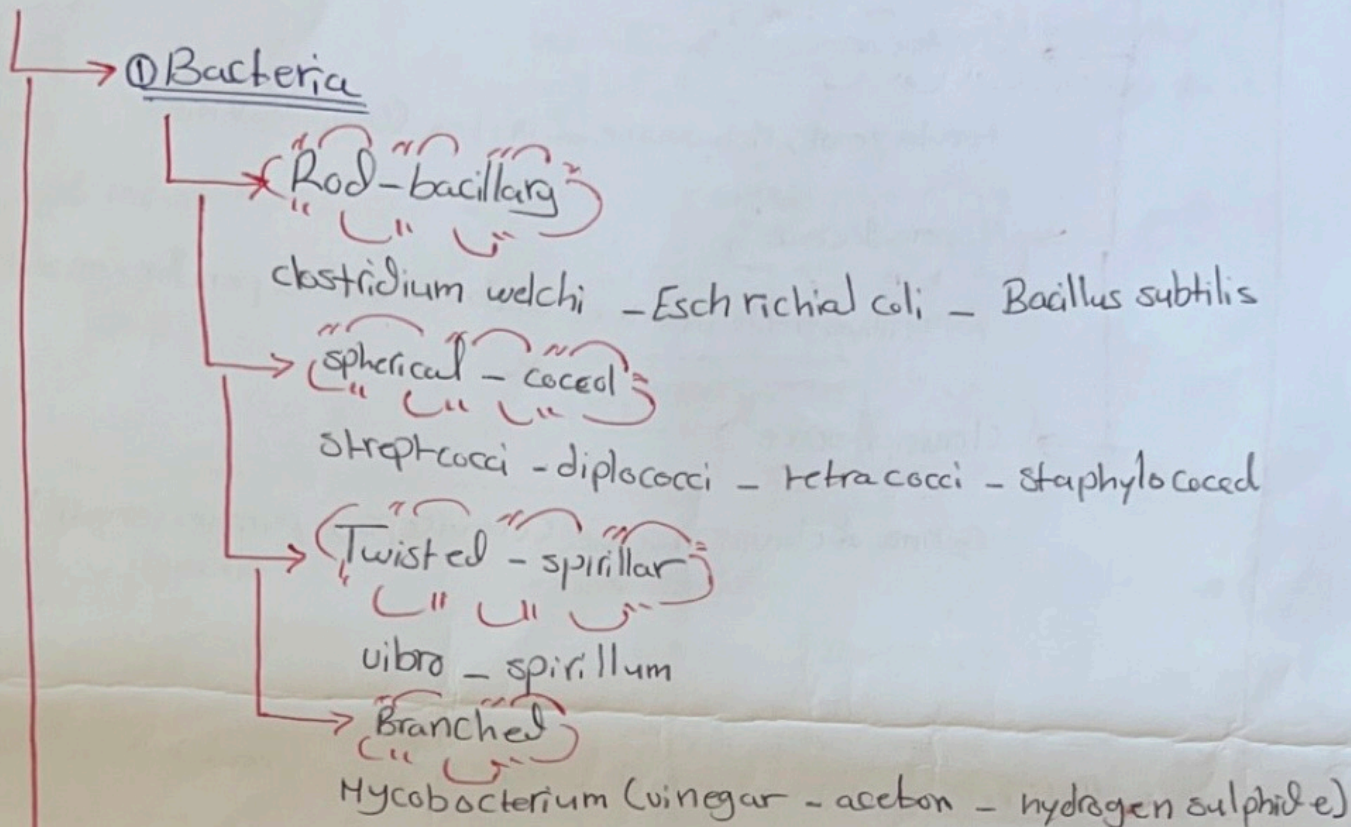 ① Bacteria
Rod - bacillarg
clostridium welchi - Esch richial coli - Bacillus subtilis
spherical - coced
streptcocci - diplococci - tetra cocci - staphylo coced
Twisted - spirillar
vibro - spirillum
Branched
Mycobocterium (vinegar - aceton - hydrogen sulphide)